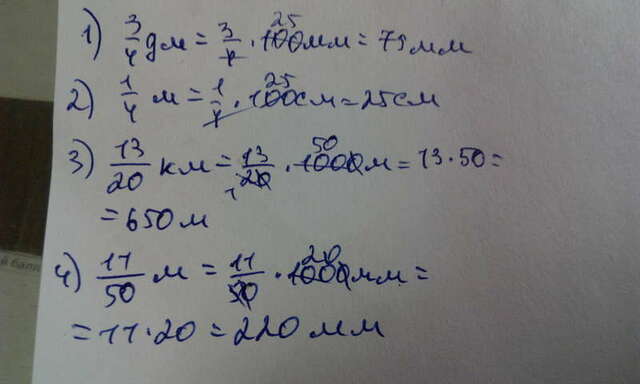 1) 3/4 дм = 3/4 · 100 25 мм = 75 мм
2) 1/4 м = 1/4 · 100 25 см = 25 см
3) 13/20 км = 13/20 1 · 1000 50 м = 13 · 50 =
= 650 м
4) 11/50 м = 11/50 · 1000 20 мм =
= 11 · 20 = 220 мм